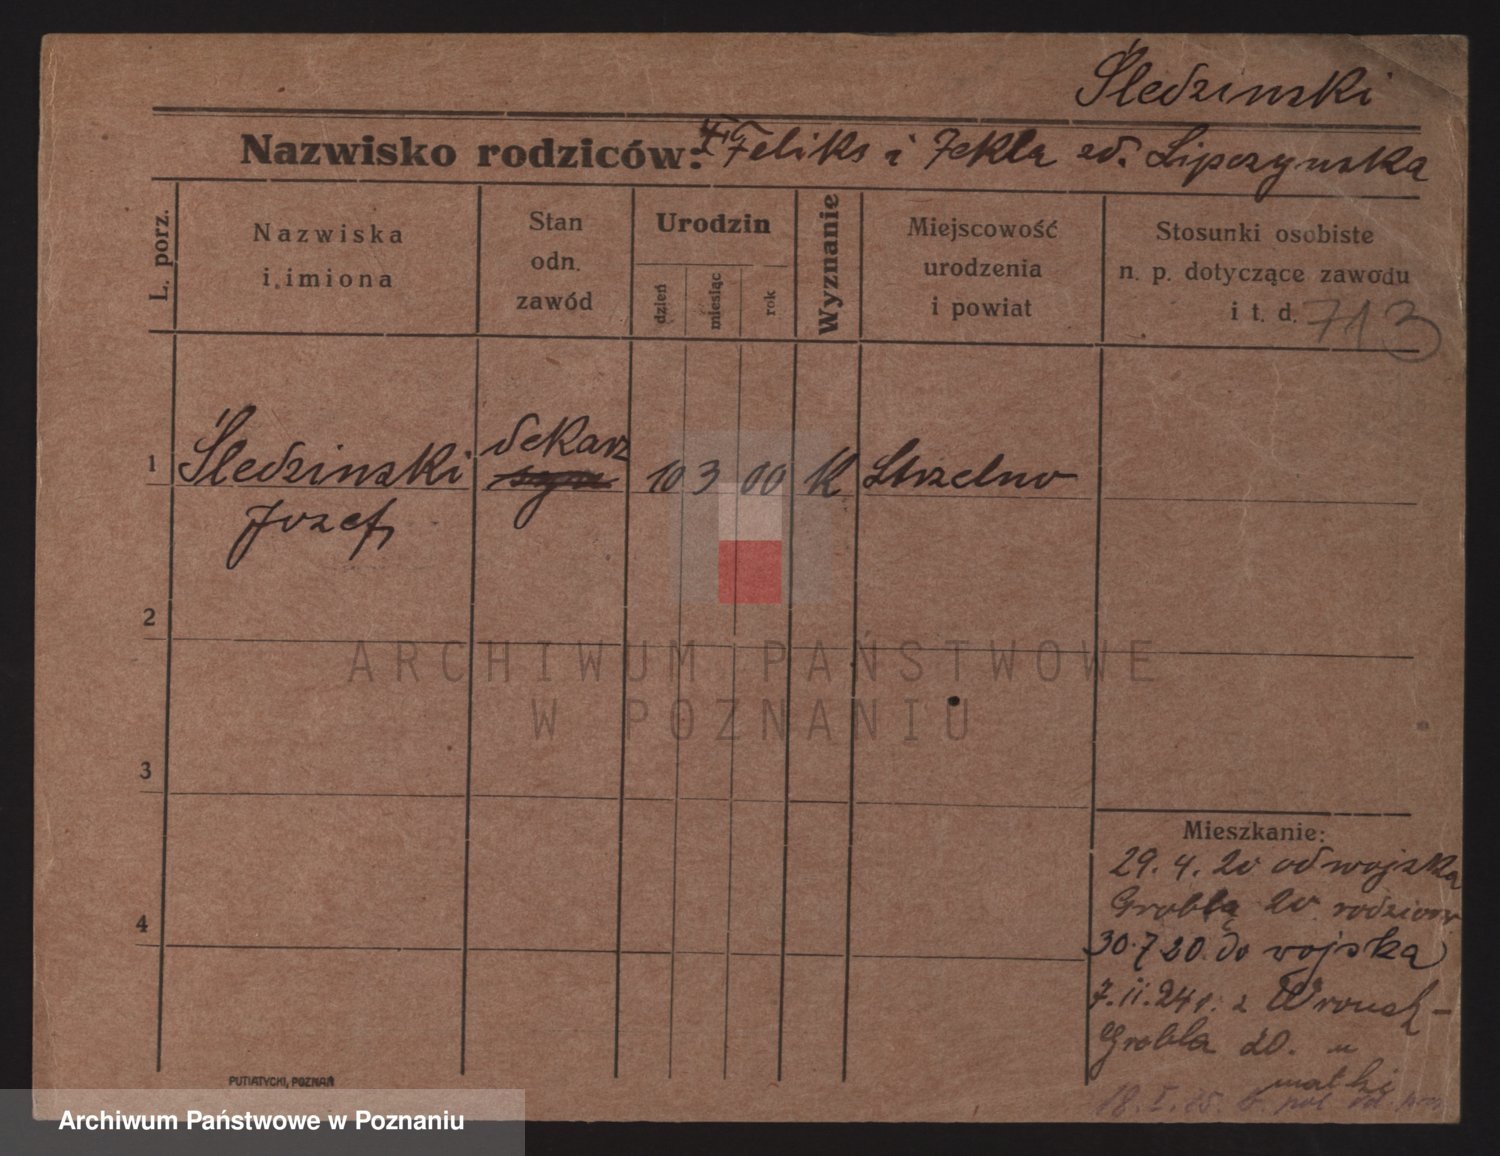 Śledzinski
Nazwisko rodziców: Feliks i Tekla zd. Lipczynska
L. porz.
Nazwiska
i imiona
Stan
odn.
zawód
Urodzin
dzień
miesiąc
rok
Wyznanie
Miejscowość
urodzenia
i powiat
Stosunki osobiste
n. p. dotyczące zawodu
i t. d. 713
1 Śledzinski dekarz 10 3 00 K Strzelno
syn
Jozef
2
3
4
Mieszkanie:
29.4.20 od wojska
Grobla 20 rodzicow
30.7 20. do wojska
7.11.24 r. z Wronek -
Grobla 20. u
matki
18.I.25.
PUTIATYCKI, POZNAŃ
ARCHIWUM PAŃSTWOWE
W POZNANIU
Archiwum Państwowe w Poznaniu